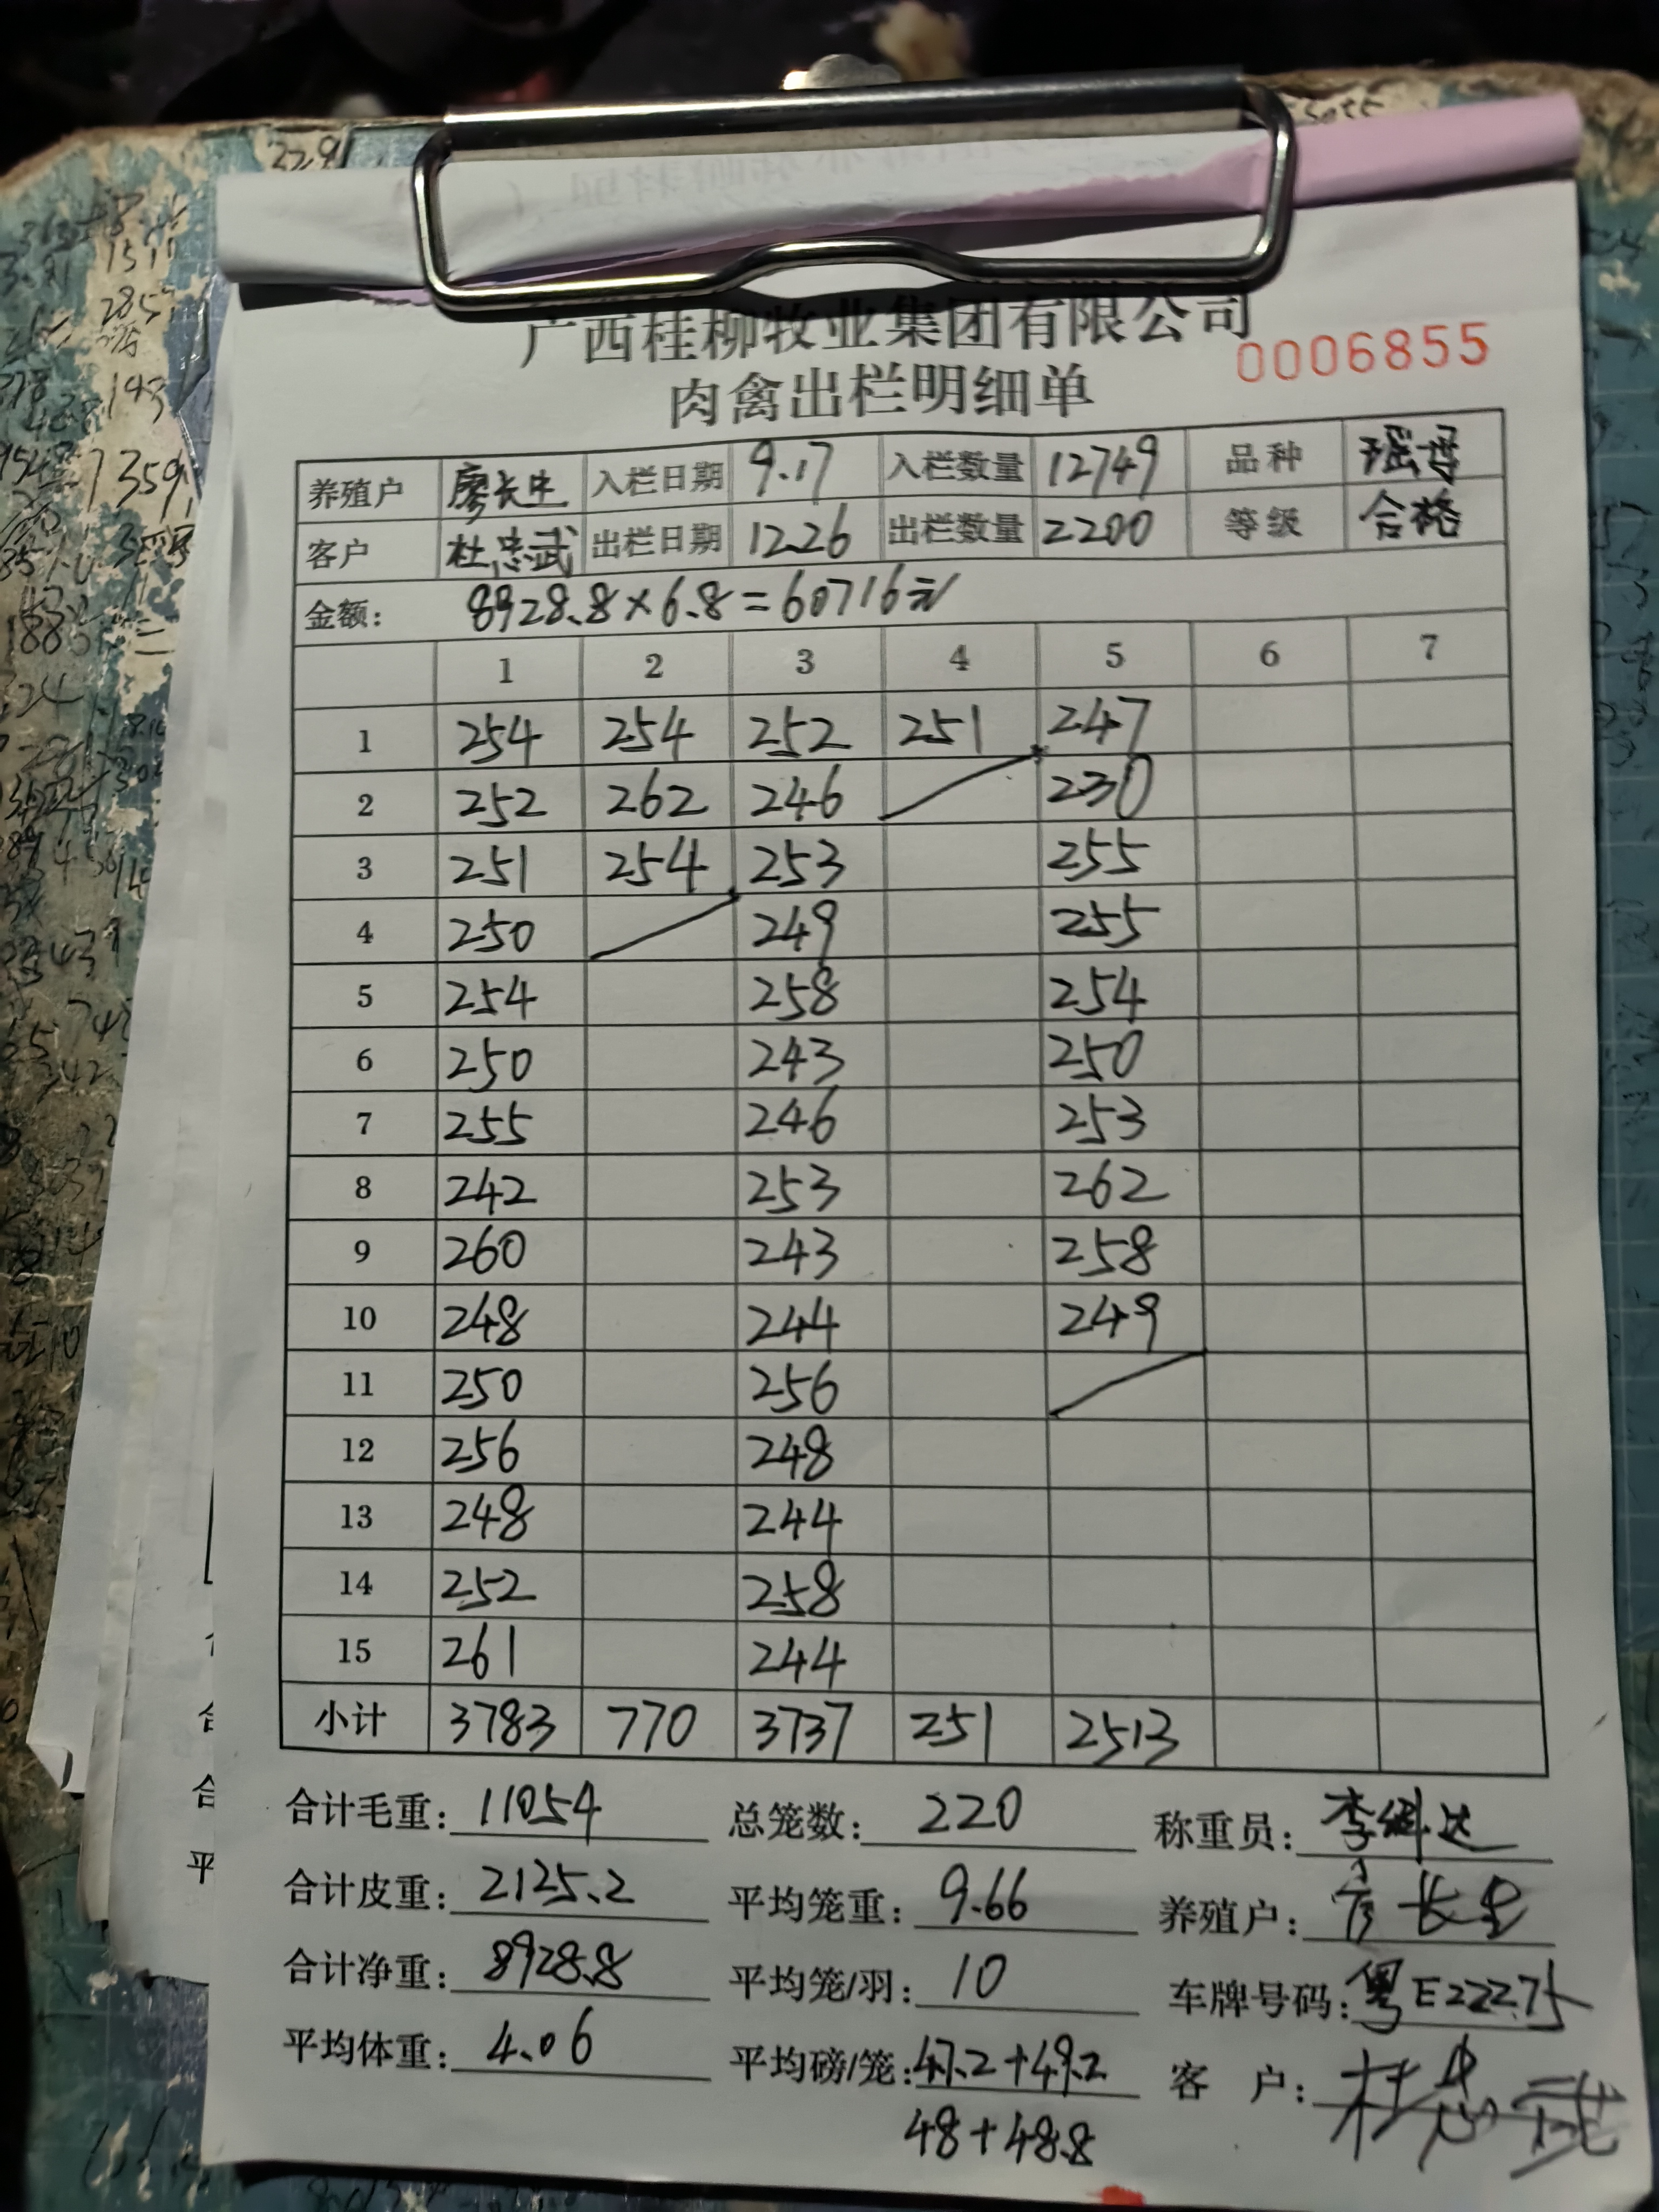 广西桂柳牧业集团有限公司
0006855
肉禽出栏明细单
养殖户 廖长生 入栏日期 9.17 入栏数量 12749 品种 瑶哥
客户 杜忠武 出栏日期 12.26 出栏数量 2200 等级 合格
金额: 8928.8×6.8=60716元
1 2 3 4 5 6 7
1 254 254 252 251 247
2 252 262 246 230
3 251 254 253 255
4 250 249 255
5 254 258 254
6 250 243 250
7 255 246 253
8 242 253 262
9 260 243 258
10 248 244 249
11 250 256
12 256 248
13 248 244
14 252 258
15 261 244
小计 3783 770 3737 251 2513
合计毛重: 11054 总笼数: 220 称重员:
合计皮重: 2125.2 平均笼重: 9.66 养殖户:
合计净重: 8928.8 平均笼/羽: 10 车牌号码: 粤E22275
平均体重: 4.06 平均磅/笼: 47.2+49.2 客 户: 杜忠武
48+48.8